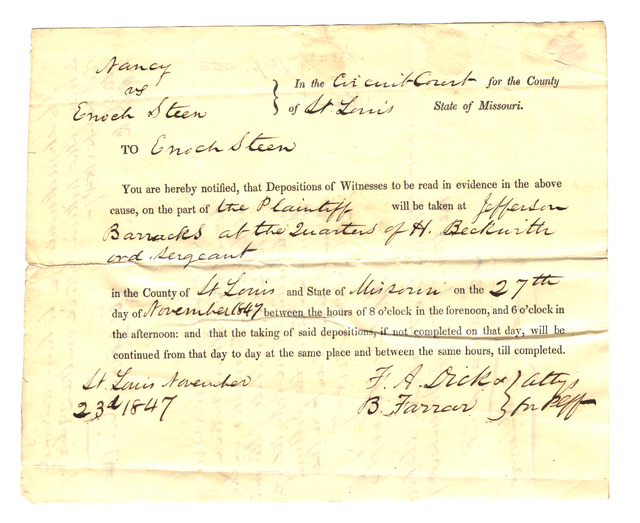 Nancy
vs
Enoch Steen
In the Circuit Court for the County
of St Louis State of Missouri.
TO Enoch Steen
You are hereby notified, that Depositions of Witnesses to be read in evidence in the above
cause, on the part of the Plaintiff will be taken at Jefferson
Barracks at the Quarters of H. Beckwith
ord Sergeant
in the County of St Louis and State of Missouri on the 27th
day of November 1847 between the hours of 8 o'clock in the forenoon, and 6 o'clock in
the afternoon: and that the taking of said depositions, if not completed on that day, will be
continued from that day to day at the same place and between the same hours, till completed.
St Louis November
23d 1847
F. A. Dick & } attys
B. Farrar } for Plff